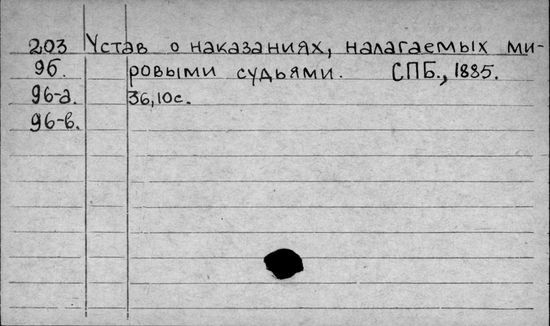 203 Устав о наказаниях, налагаемых ми-
96. ровыми судьями. СПБ., 1885.
96-а. 36,10с.
96-в.